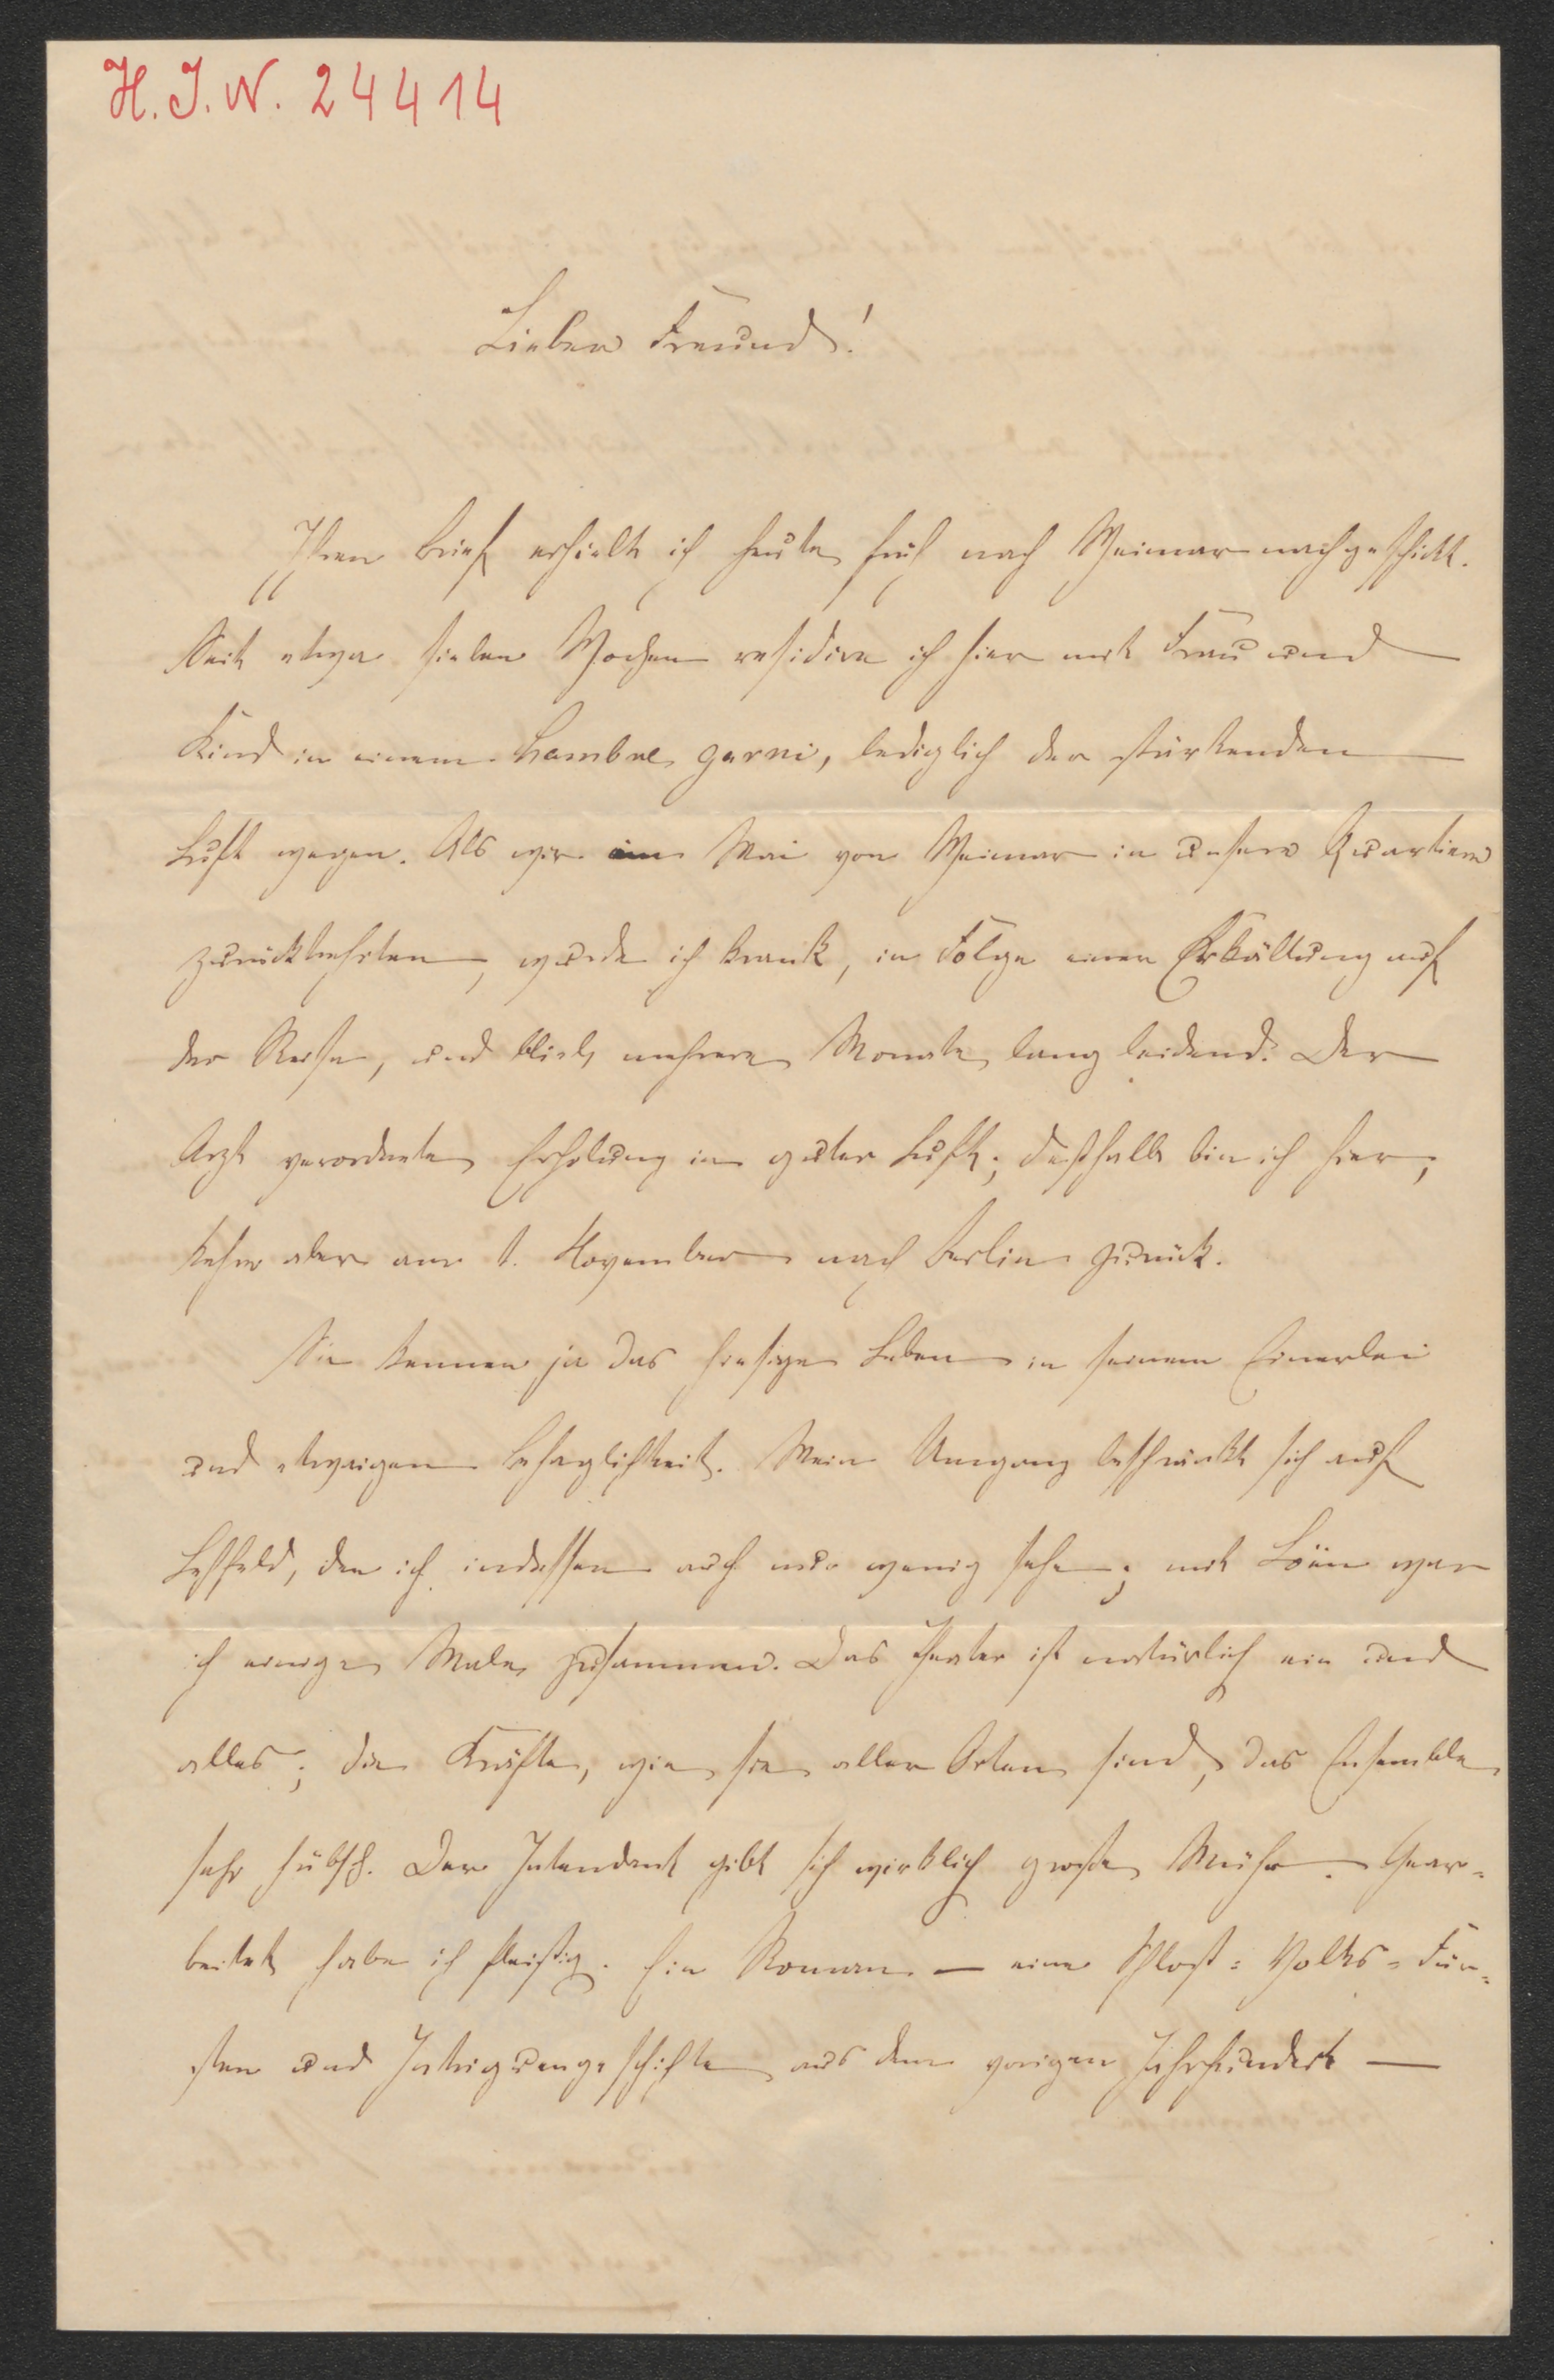 H. I. N. 24414
Lieber Freund!
Ihren Brief erhielt ich heute früh nach Weimar nachgeschickt.
Seit etwa sieben Wochen residire ich hier mit Frau und
Kind in einem Chambre garni, lediglich der stärkenden
Luft wegen. Als wir im Mai von Weimar in unsere Quartiere
zurückkehrten, wurde ich krank, in Folge einer Erkältung auf
der Reise, und blieb mehrere Monate lang leidend. Der
Arzt verordnete Erholung in guter Luft; deßhalb bin ich hier,
kehre aber am 1. November nach Berlin zurück.
Sie kennen ja das hiesige Leben in seinem Einerlei
und etwaigen Behaglichkeit. Mein Umgang beschränkt sich auf
, den ich indessen auch nur wenig sehe; mit Loën war
ich einige Male zusammen. Das Theater ist natürlich ein und
alles; die Kräfte, wie sie aller Orten sind, das Ensemble
sehr hübsch. Der Intendant gibt sich wirklich große Mühe. Gear-
beitet habe ich fleißig. Ein Roman — eine Schloß- Volks- Für-
sten und Intriguengeschichte aus dem vorigen Jahrhundert —